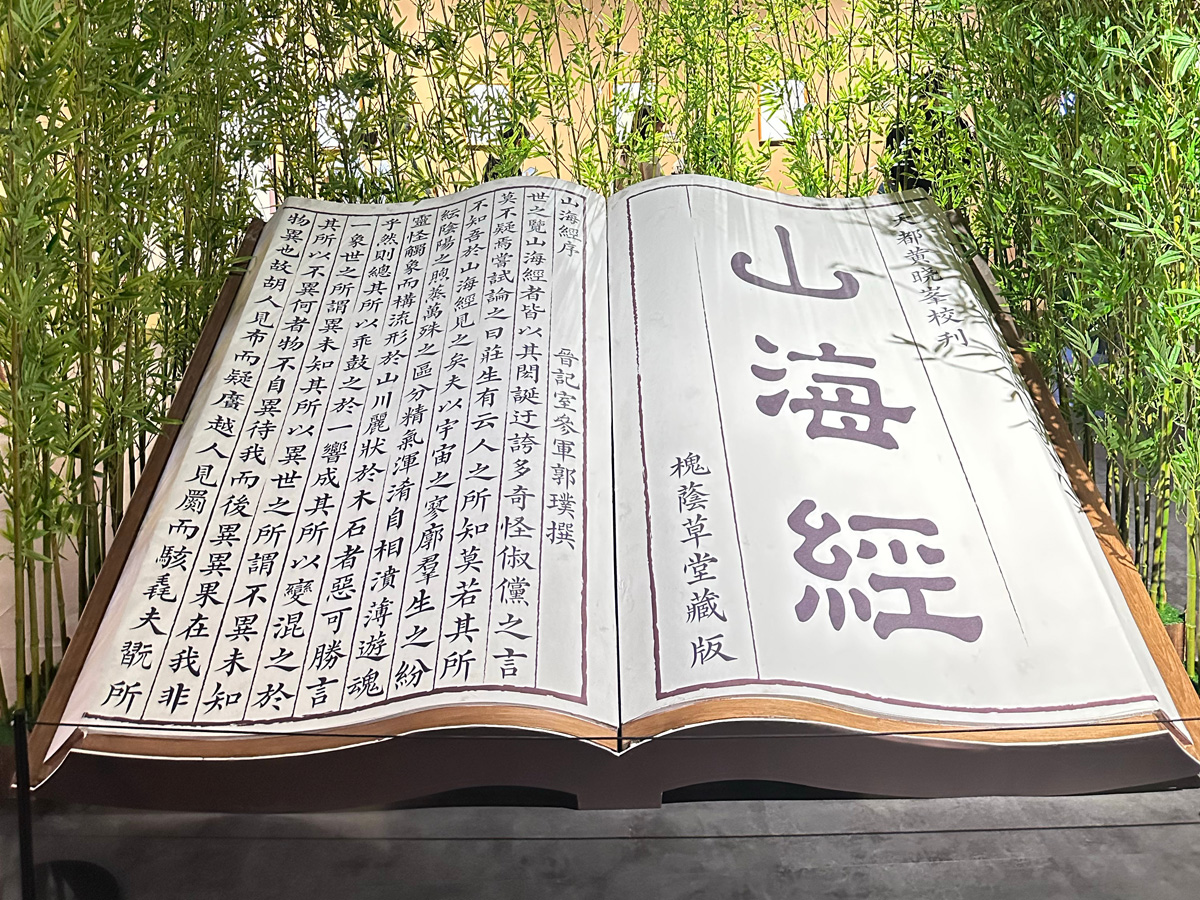 天都黄晓峯校刊
山海經
槐蔭草堂藏版
山海經序 晉記室參軍郭璞撰
世之覽山海經者皆以其閎誕迂誇多奇怪俶儻之言
莫不疑焉嘗試論之曰莊生有云人之所知莫若其所
不知吾於山海經見之矣夫以宇宙之寥廓羣生之紛
紜陰陽之煦蒸萬殊之區分精氣渾淆自相濆薄遊魂
靈怪觸象而構流形於山川麗狀於木石者惡可勝言
乎然則總其所以乖鼓之於一響成其所以變混之於
一象世之所謂異未知其所以異世之所謂不異未知
其所以不異何者物不自異待我而後異異果在我非
物異也故胡人見布而疑廣越人見罽而駭毳夫翫所